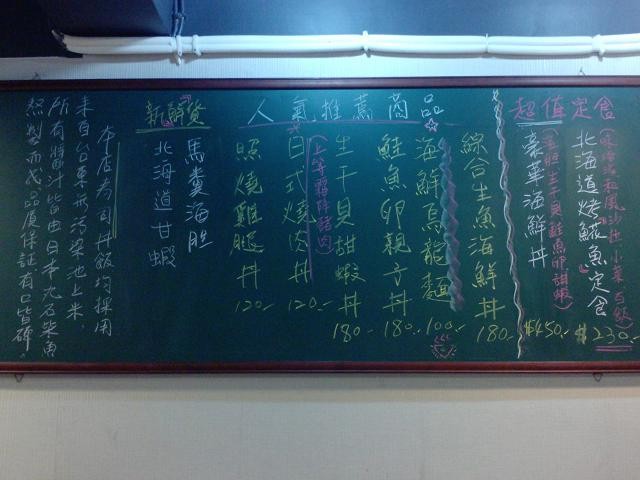 超值定食
北海道烤鯱魚定食
$230.-
豪華海鮮丼
(海胆生干貝鮭魚卵甜蝦)
$450.-
人氣推薦商品
綜合生魚海鮮丼
180.-
海鮮烏龍麵
100.-
鮭魚卵親子丼
180.-
生干貝甜蝦丼
180.-
日式燒肉丼
120.-
照燒雞腿丼
120.-
新鮮貨
馬糞海胆
北海道甘蝦
本店壽司丼飯均採用
來自台東無污染池上米,
所有醬汁皆由日本丸乃柴魚
熬製而成品質保証有口皆碑。